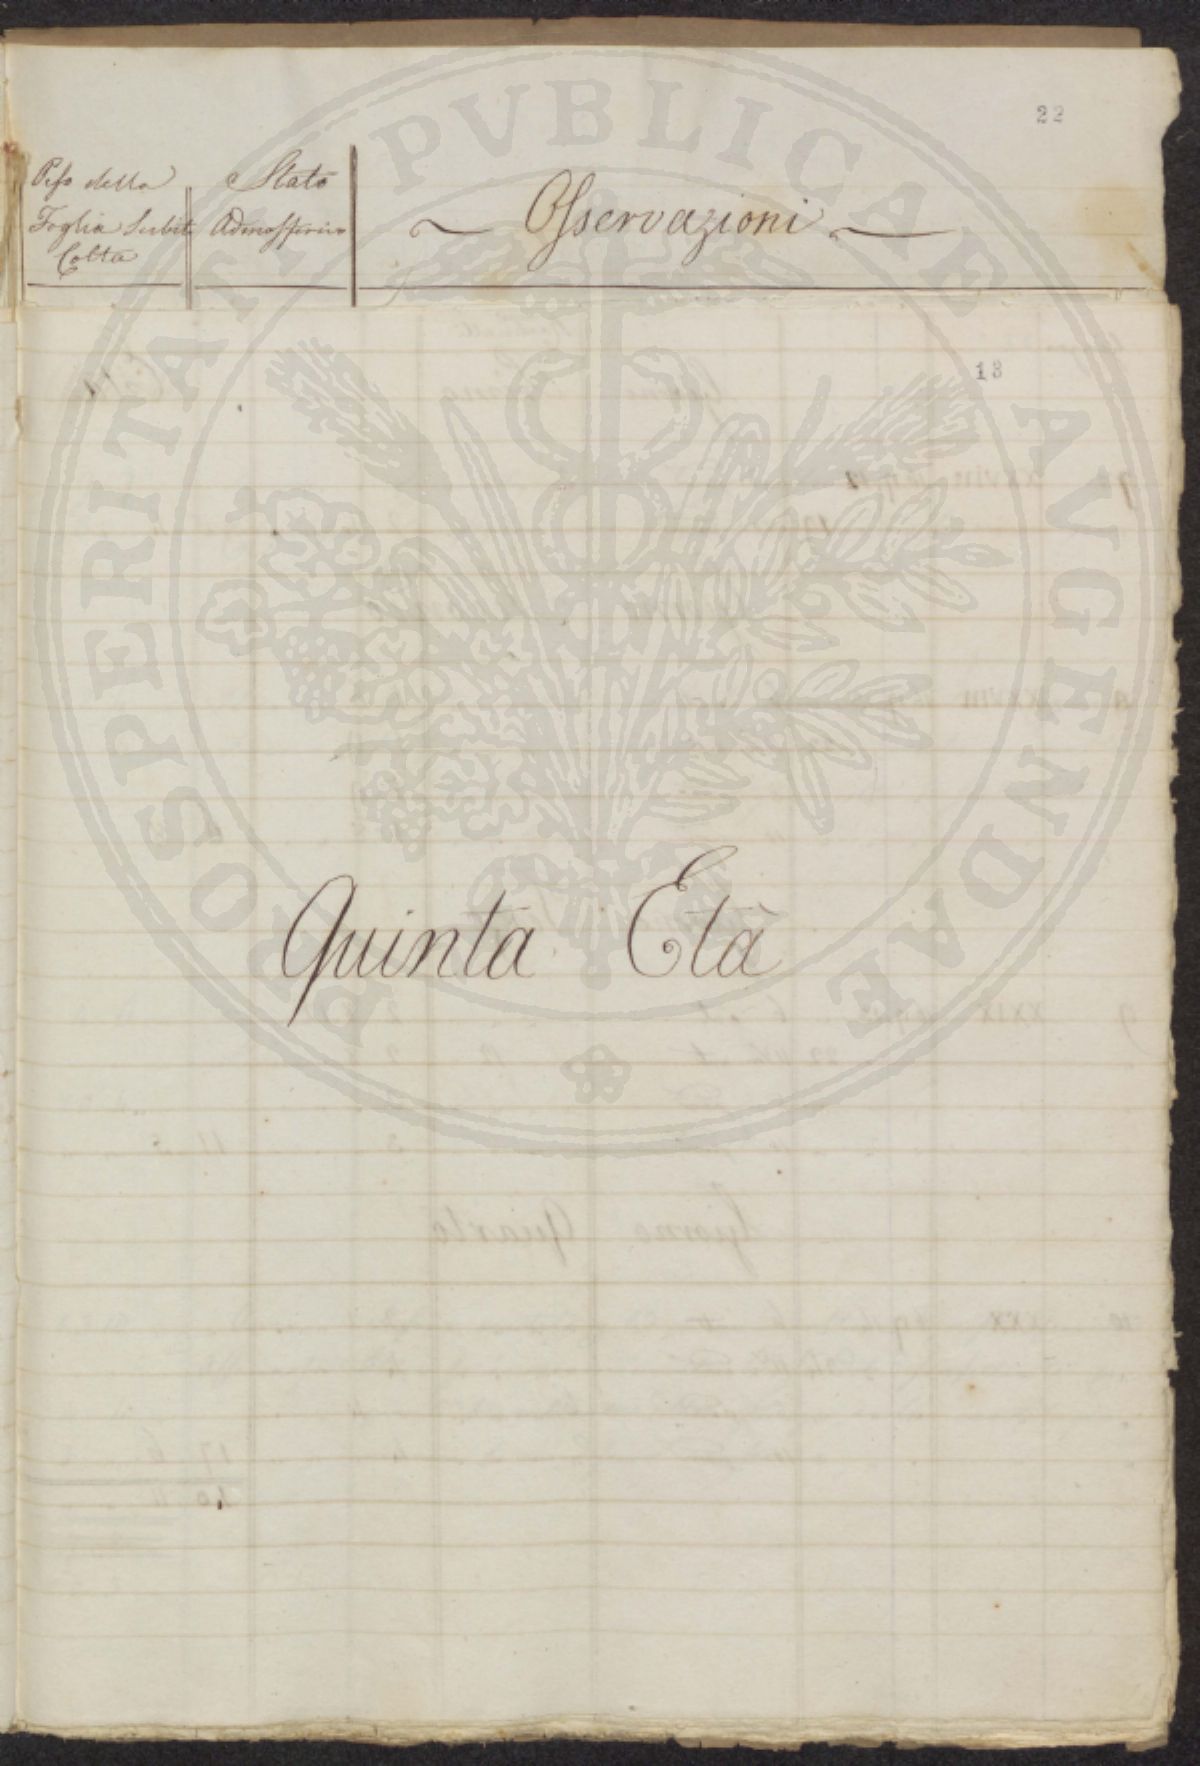 22
Peso della
Foglia Subito
Colta
Stato
Admosferico
Osservazioni
13
Quinta Età
PROSPERITATI PVBLICAE AVGENDAE